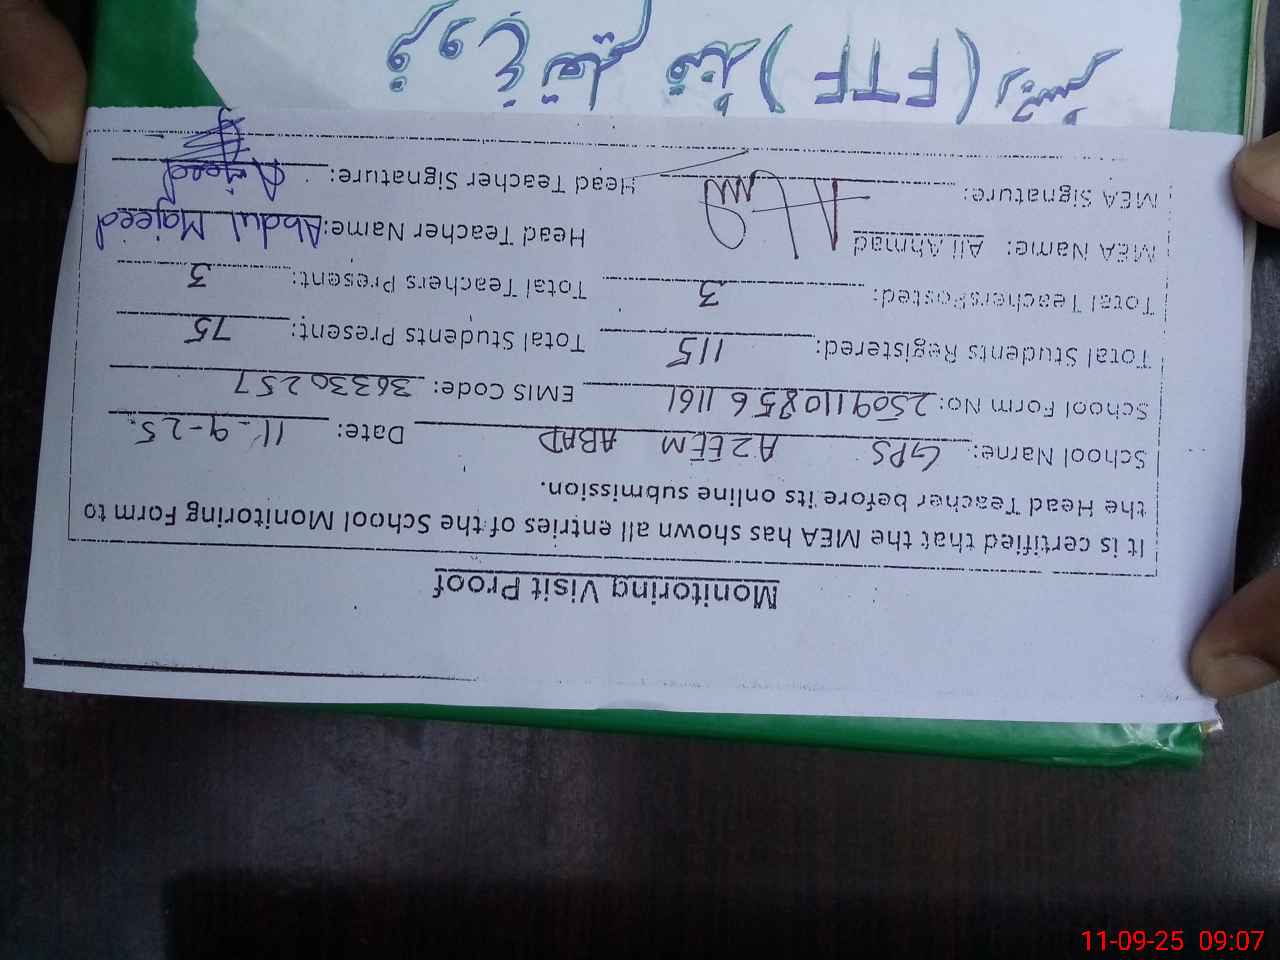 Monitoring Visit Proof
It is certified that the MEA has shown all entries of the School Monitoring Form to
the Head Teacher before its online submission.
School Name: GPS AZEEM ABAD Date: 11-9-25.
School Form No: 2509110856 1161 EMIS Code: 36330257
Total Students Registered: 115 Total Students Present: 75
Total Teachers Posted: 3 Total Teachers Present: 3
MEA Name: Ali Ahmad Head Teacher Name: Abdul Majeed
MEA Signature: Head Teacher Signature: Ajeed
رجسٹر (FTF) فنڈ فروغ تعلیم
11-09-25 09:07